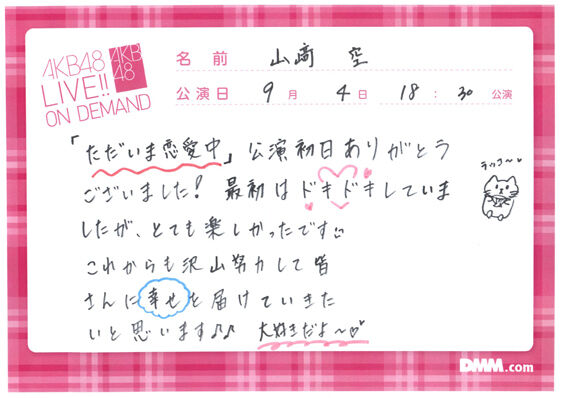 AKB48
LIVE!!
ON DEMAND
AKB
48
名前 山﨑 空
公演日 9月 4日 18:30 公演
「ただいま恋愛中」公演初日ありがとう
ございました! 最初はドキドキしていま
したが、とても楽しかったです
これからも沢山努力して皆
さんに幸せを届けていきた
いと思います♪♪ 大好きだよ〜♡♥
ラッコ〜
DMM.com